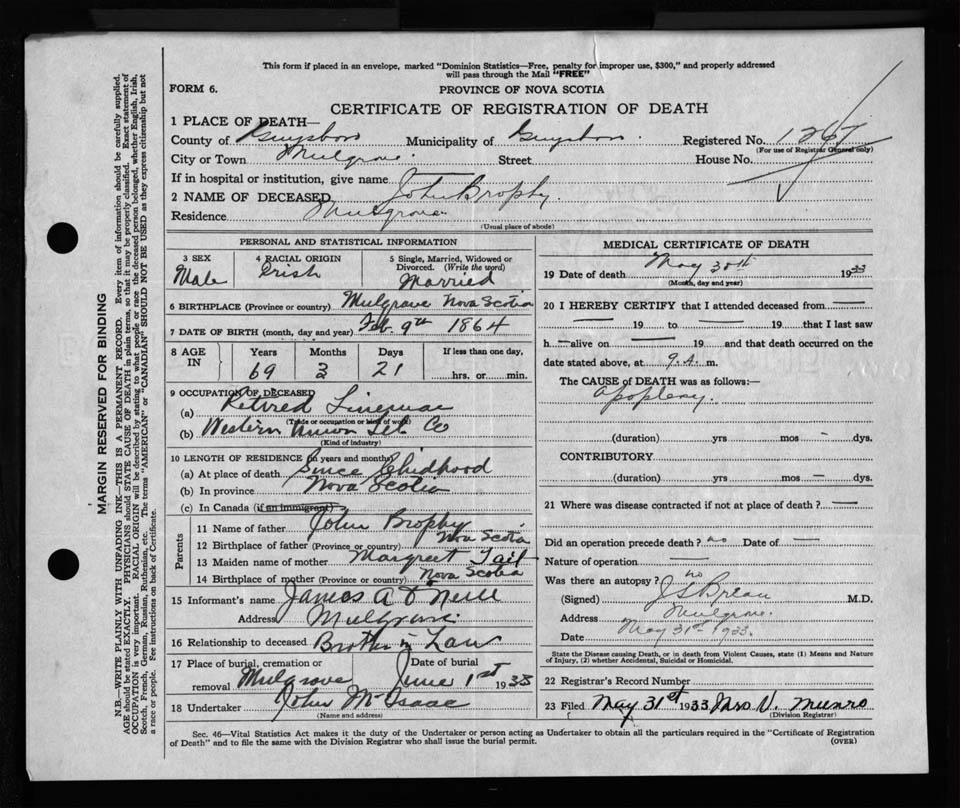 This form if placed in an envelope, marked "Dominion Statistics—Free, penalty for improper use, $300," and properly addressed
will pass through the Mail "FREE"
FORM 6.
PROVINCE OF NOVA SCOTIA
CERTIFICATE OF REGISTRATION OF DEATH
1 PLACE OF DEATH—
County of Guysboro Municipality of Guysboro Registered No. 1267
(For use of Registrar General only)
City or Town Mulgrave. Street House No.
If in hospital or institution, give name
2 NAME OF DECEASED John Brophy.
Residence Mulgrave
(Usual place of abode)
PERSONAL AND STATISTICAL INFORMATION
3 SEX
Male
4 RACIAL ORIGIN
Irish
5 Single, Married, Widowed or
Divorced. (Write the word)
Married
6 BIRTHPLACE (Province or country) Mulgrave Nova Scotia
7 DATE OF BIRTH (month, day and year) Feb 9th 1864
8 AGE IN
Years Months Days If less than one day,
69 3 21 hrs. or min.
9 OCCUPATION OF DECEASED
(a) Retired Lineman
(Trade or occupation or kind of work)
(b) Western Union Tel Co
(Kind of industry)
10 LENGTH OF RESIDENCE (in years and months)
(a) At place of death Since Chidhood
(b) In province Nova Scotia
(c) In Canada (if an immigrant)
Parents
11 Name of father John Brophy
12 Birthplace of father (Province or country) Nova Scotia
13 Maiden name of mother Margreet Tait
14 Birthplace of mother (Province or country) Nova Scotia
15 Informant's name James A O'Neill
Address Mulgrave
16 Relationship to deceased Brother in Law
17 Place of burial, cremation or Date of burial
removal Mulgrave June 1st 1933
18 Undertaker John McIsaac
(Name and address)
MEDICAL CERTIFICATE OF DEATH
19 Date of death May 30th 1933
(Month, day and year)
20 I HEREBY CERTIFY that I attended deceased from —
— 19 to — 19 that I last saw
h — alive on — 19 and that death occurred on the
date stated above, at 9.A. m.
The CAUSE OF DEATH was as follows:—
Apoplexy.
(duration) yrs mos — dys.
CONTRIBUTORY
(duration) yrs mos — dys.
21 Where was disease contracted if not at place of death? —
Did an operation precede death? no Date of —
Nature of operation
Was there an autopsy? no
(Signed) M.D.
Address Mulgrave.
Date May 31st 1933.
State the Disease causing Death, or in death from Violent Causes, state (1) Means and Nature
of Injury, (2) whether Accidental, Suicidal or Homicidal.
22 Registrar's Record Number
23 Filed May 31st 1933 Mrs V. Munro
(Division Registrar)
Sec. 46—Vital Statistics Act makes it the duty of the Undertaker or person acting as Undertaker to obtain all the particulars required in the "Certificate of Registration
of Death" and to file the same with the Division Registrar who shall issue the burial permit.
(OVER)
MARGIN RESERVED FOR BINDING
N.B.—WRITE PLAINLY WITH UNFADING INK—THIS IS A PERMANENT RECORD. Every item of information should be carefully supplied.
AGE should be stated EXACTLY. PHYSICIANS should STATE CAUSE OF DEATH in plain terms, so that it may be properly classified. Exact statement of
OCCUPATION is very important. RACIAL ORIGIN will be described by stating to what people or race the deceased person belonged, whether English, Irish,
Scotch, French, German, Russian, Ruthenian, etc. The terms "AMERICAN" or "CANADIAN" SHOULD NOT BE USED as they express citizenship but not
a race or people. See instructions on back of Certificate.